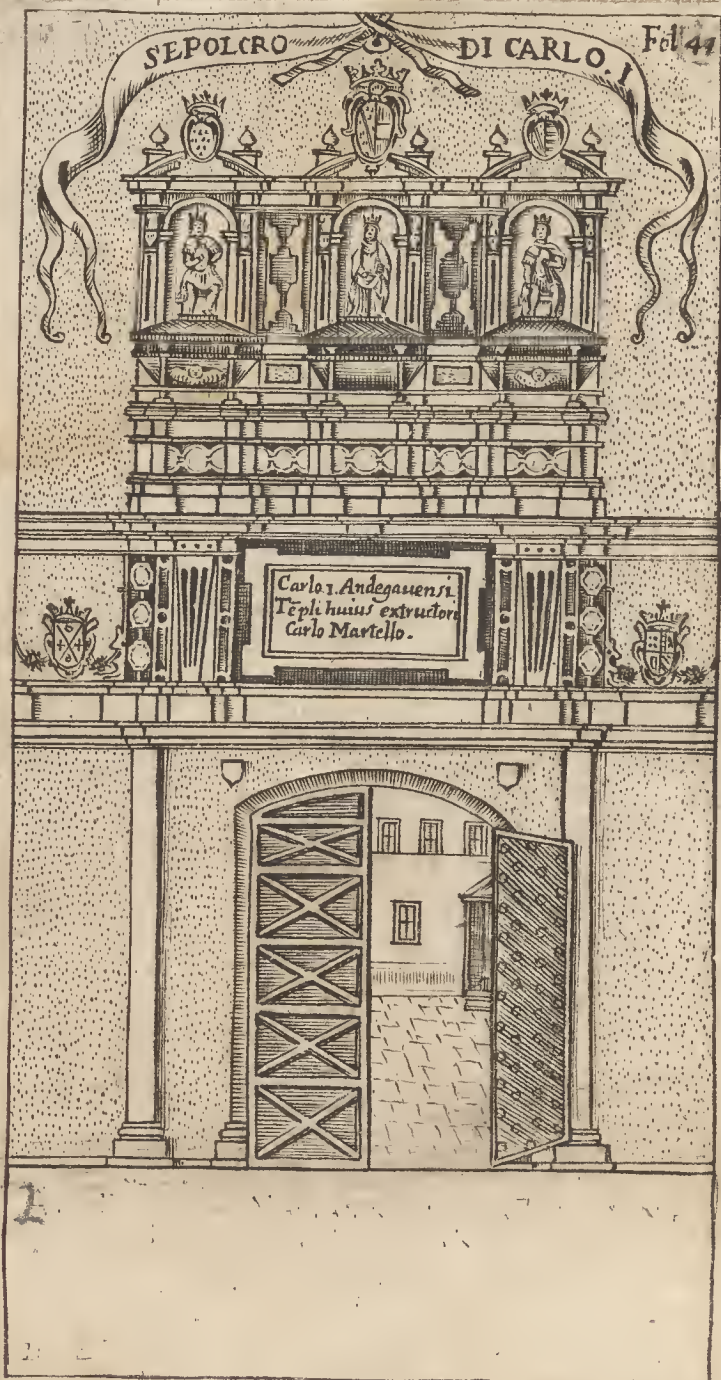 SEPOLCRO DI CARLO. I
Fol 44
Carlo 1. Andegauensi
Tēpli huius extructori
Carlo Martello.